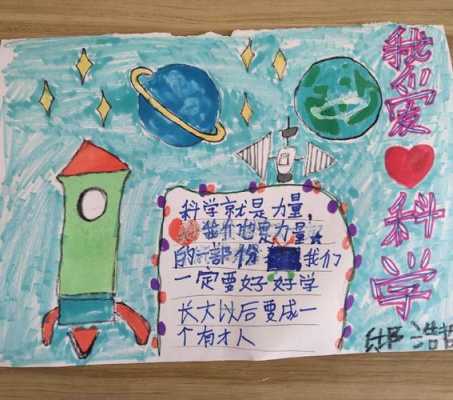 我爱科学
科学就是力量,
们也是力量
的部份我们
一定要好好学
长大以后要成一
个有才人
浩